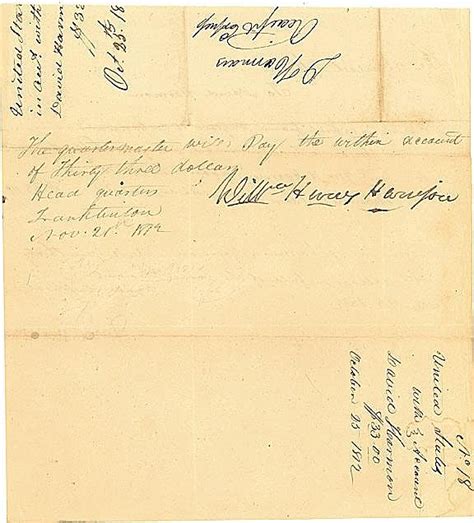 United Sta
in acct with
David Harm
$32
Oct 23. 18
D Harman
Receipt
The quartermaster will Pay the within account
of Thirty three dollars
Head quarters
Franklinton
Nov. 21st 1812
Willm Henry Harrison
No 18
United States
with
Account
David Harmon
$33.00
October 23 1812